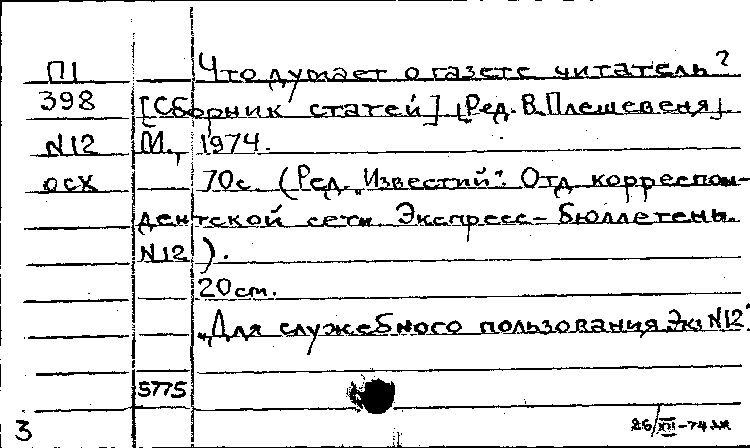 П1 Что думает о газете читатель?
398 [Сборник статей] [Ред. В. Плешевеня]
N12 М., 1974.
осх 70с. (Ред. "Известий". Отд. корреспон-
дентской сети. Экспресс-бюллетень.
N12).
20 см.
"Для служебного пользования Экз N12"
5775
3 26/XII-74